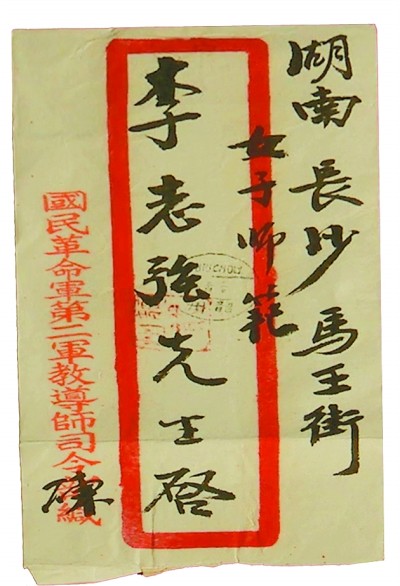 湖南長沙馬王街
女子师範
李志強先生啓
國民革命軍第二軍教導師司令部緘